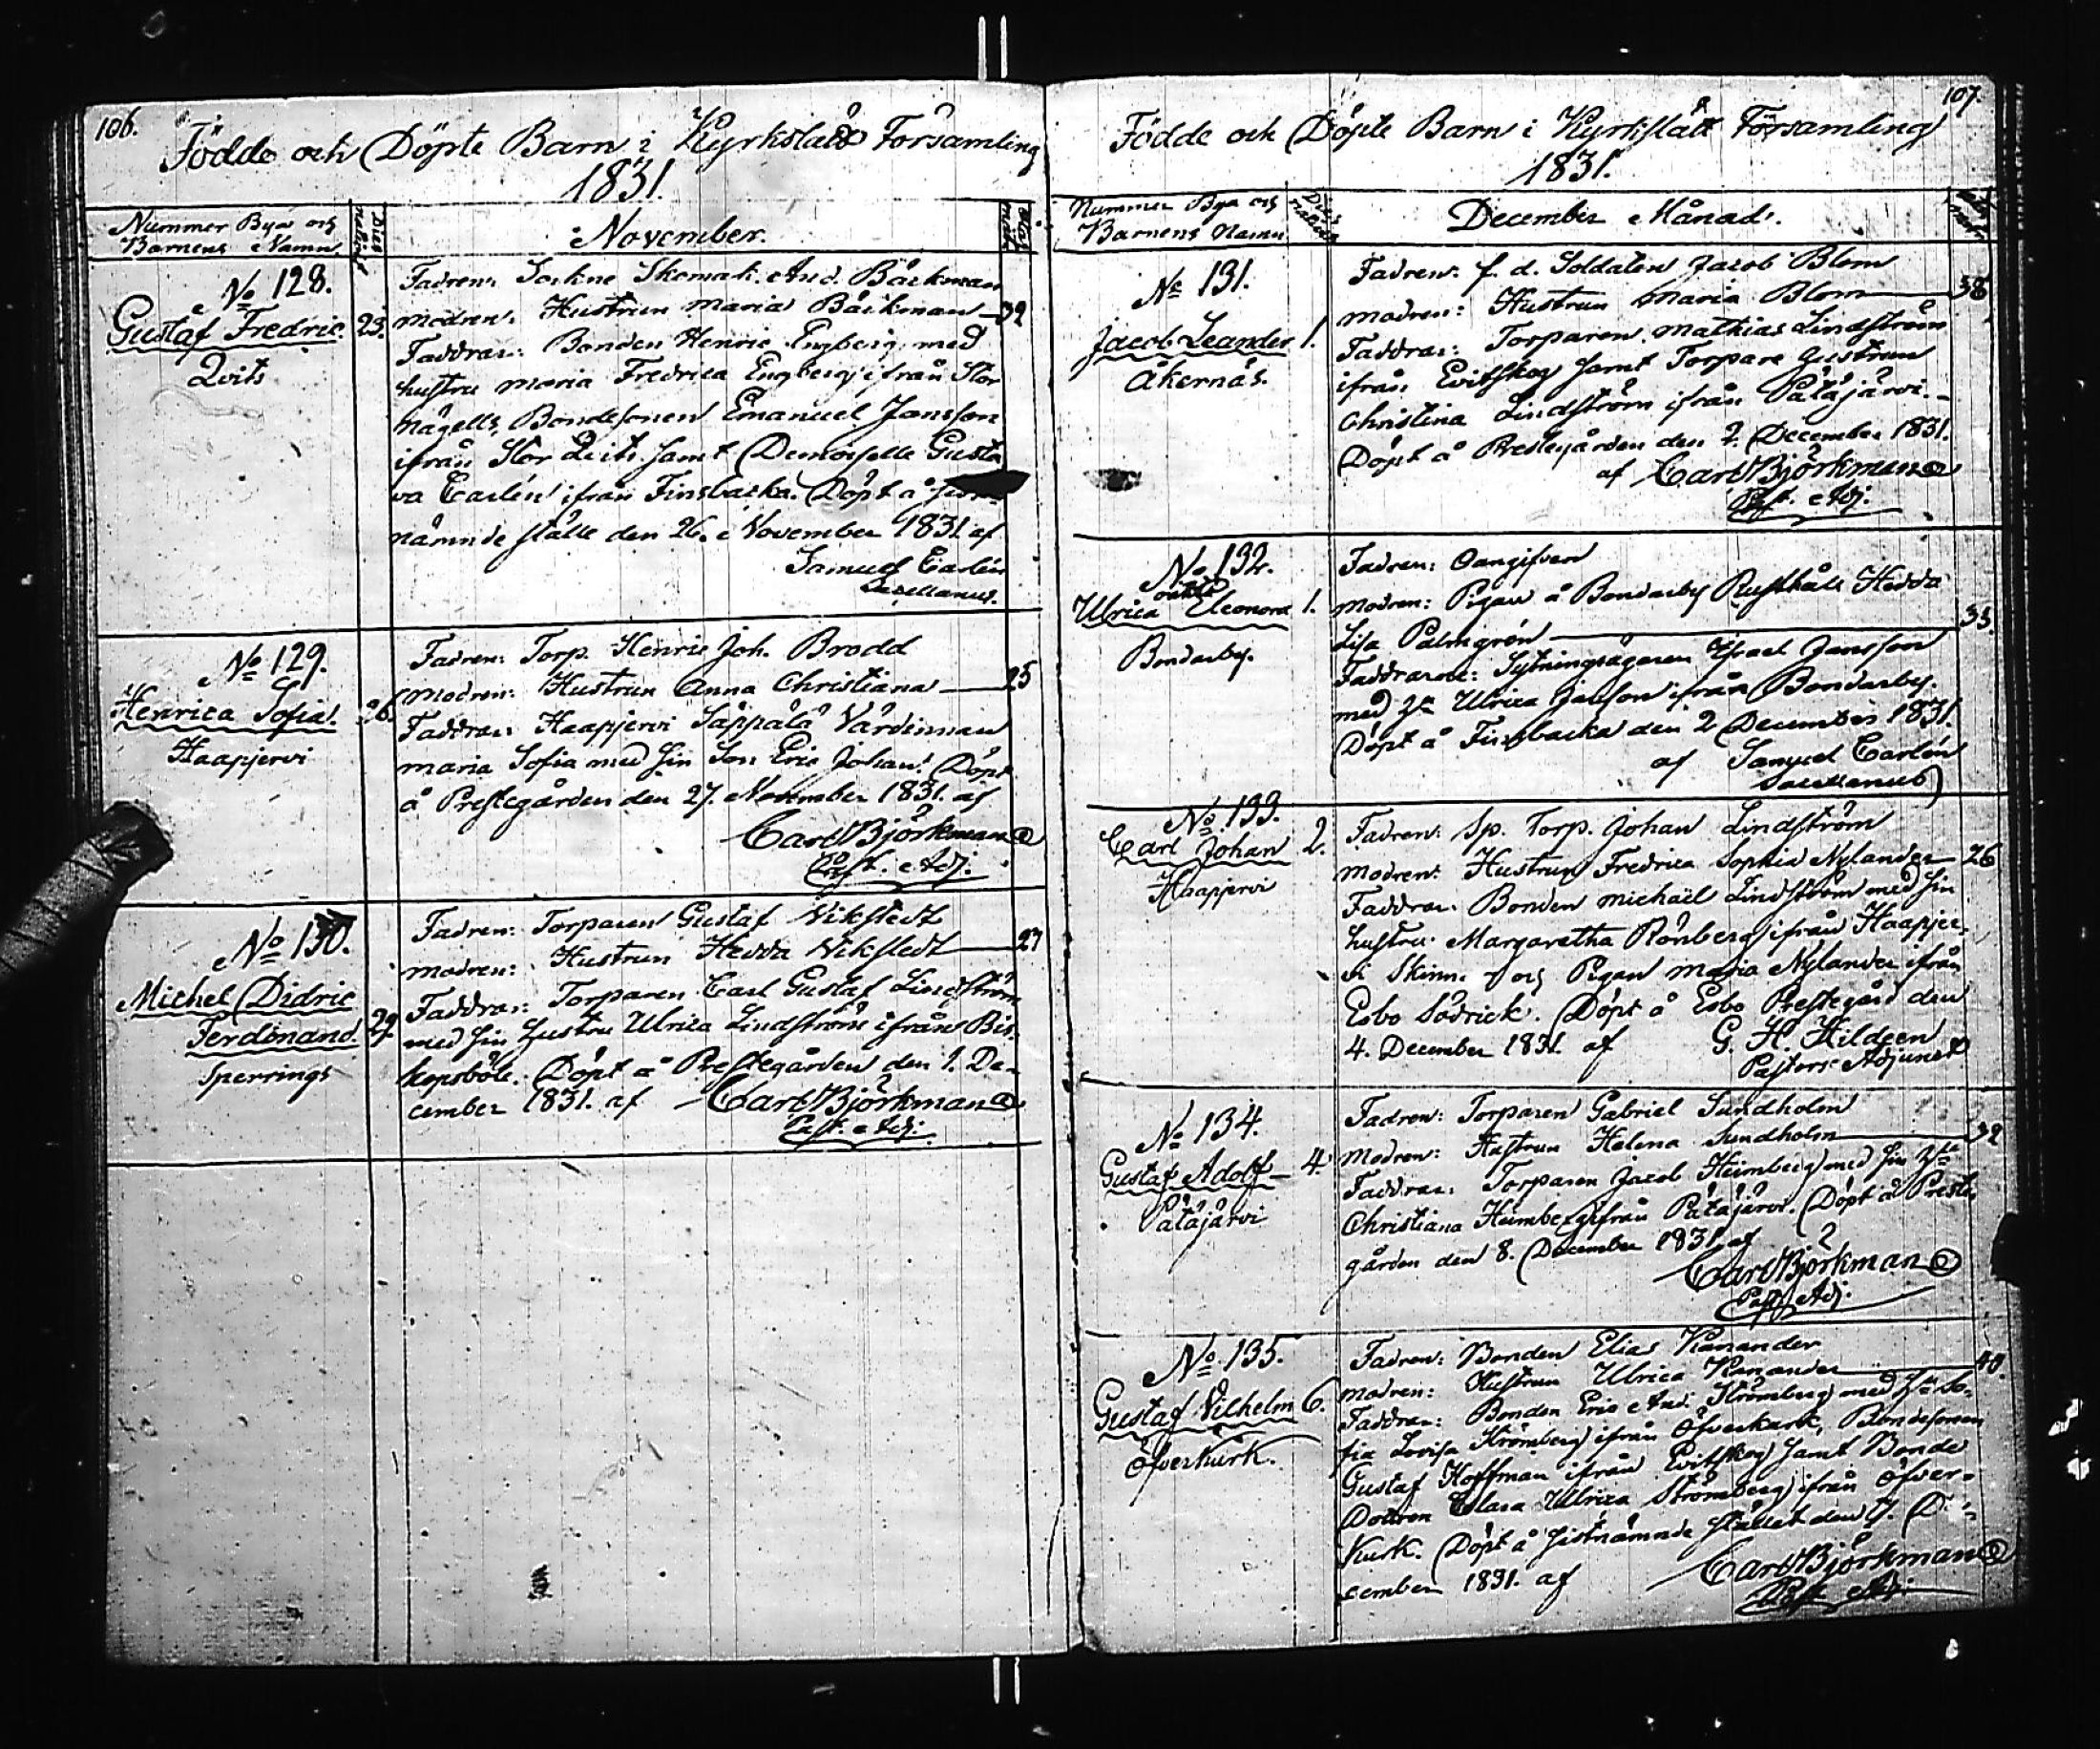 106.
Födde och Döpte Barn i Kyrkslätt Församling
1831.
Nummer Bya och
Barnens Namn.
November.
No 128.
Gustaf Fredric.
Qvits
23.
Fadren: Sockne Skomak. And. Bäckman
Modren: Hustrun Maria Bäckman — 32
Faddrar: Bonden Henric Engberg med
hustru Maria Fredrica Engberg ifrån Stor
Nägells, Bondesonen Emanuel Jansson
ifrån Stor Qvits samt Demoiselle Gusta
va Carlén ifrån Finsbacka. Döpt å
nämnde ställe den 26. November 1831 af
Samuel Carlén
Sacellanus.
No 129.
Henrica Sofia.
Haapjervi
26.
Fadren: Torp. Henric Joh. Brodd
Modren: Hustrun Anna Christiana — 25
Faddrar: Haapjervi Säppälä Värdinnan
Maria Sofia med sin Son Eric Johan. Döpt
å Prestegården den 27. November 1831. af
Carl Björkman
Past. Adj.
No 130.
Michel Didric
Ferdinand.
Sperrings
29.
Fadren: Torparen Gustaf Vikstedt
Modren: Hustrun Hedda Vikstedt — 27
Faddrar: Torparen Carl Gustaf Lindström
med sin hustru Ulrica Lindström ifrån Bis-
kopsböle. Döpt å Prestegården den 1. De-
cember 1831. af Carl Björkman
Past. Adj.
107.
Födde och Döpte Barn i Kyrkslätt Församling
1831.
Nummer Bya och
Barnens Namn
December Månad.
No 131.
Jacob Leander 1.
Åkernäs.
Fadren: f. d. Soldaten Jacob Blom
Modren: Hustrun Maria Blom — 38
Faddrar: Torparen Mathias Lindström
ifrån Evitskog samt Torpare hustrun
Christina Lindström ifrån Pätäjärvi.
Döpt å Prestegården den 2. December 1831.
af Carl Björkman
Past. Adj.
No 132.
oäkta
Ulrica Eleonora 1.
Bondarby.
Fadren: Oangifven
Modren: Pigan å Bondarby Rusthåll Hedda
Lisa Palmgrén — 33.
Faddrarne: Sytningsägaren Israel Jansson
med hu Ulrica Janson ifrån Bondarby.
Döpt å Finsbacka den 2 December 1831.
af Samuel Carlén
Sacellanus
No 133.
Carl Johan 2.
Haapjervi
Fadren: Sp. Torp. Johan Lindström
Modren: Hustrun Fredrica Sophia Nylander — 26
Faddrar: Bonden Michaël Lindström med sin
hustru Margaretha Rönberg ifrån Haapjer-
vi Skinn. och Pigan Maria Nylander ifrån
Esbo Södrick. Döpt å Esbo Prestegård den
4. December 1831. af G. H. Hildeen
Pastors Adjunct
No 134.
Gustaf Adolf 4.
Pätäjärvi
Fadren: Torparen Gabriel Sundholm
Modren: Hustrun Helena Sundholm — 32
Faddrar: Torparen Jacob Heimberg med sin hu
Christiana Heimberg ifrån Pätäjärvi. Döpt å Preste
gården den 8. December 1831. af
Carl Björkman
Past. Adj.
No 135.
Gustaf Vilhelm 6.
Öfverkurk.
Fadren: Bonden Elias Kanander
Modren: Hustrun Ulrica Kanander — 40.
Faddrar: Bonden Eric And. Strömberg med hu So-
fia Lovisa Strömberg ifrån Öfverkurk, Bondesonen
Gustaf Hoffman ifrån Evitskog samt Bonde
Dottren Clara Ulrica Strömberg ifrån Öfver-
Kurk. Döpt å sistnämnde stället den 17. De-
cember 1831. af Carl Björkman
Past. Adj.